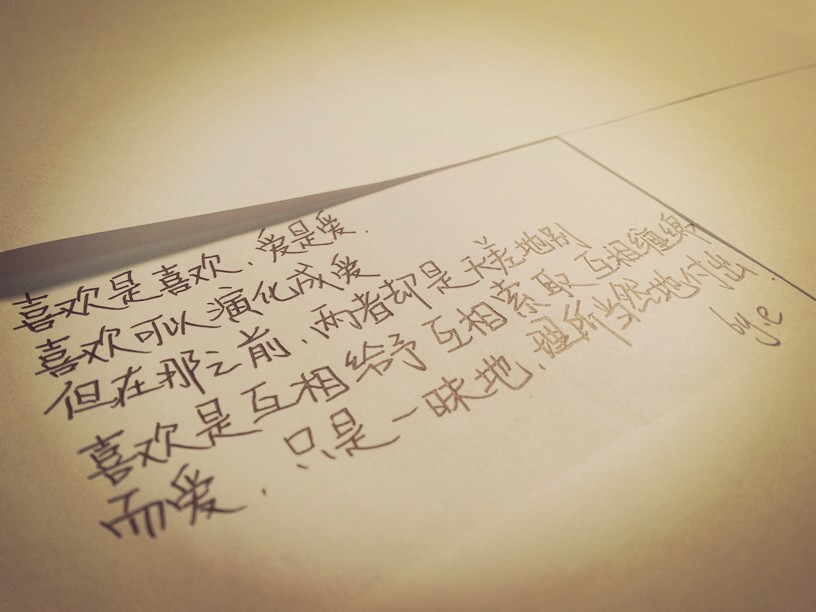 喜欢是喜欢，爱是爱.
喜欢可以演化成爱
但在那之前，两者却是天差地别
喜欢是互相给予互相索取互相缠绵
而爱，只是一味地，理所当然地付出.
by.e